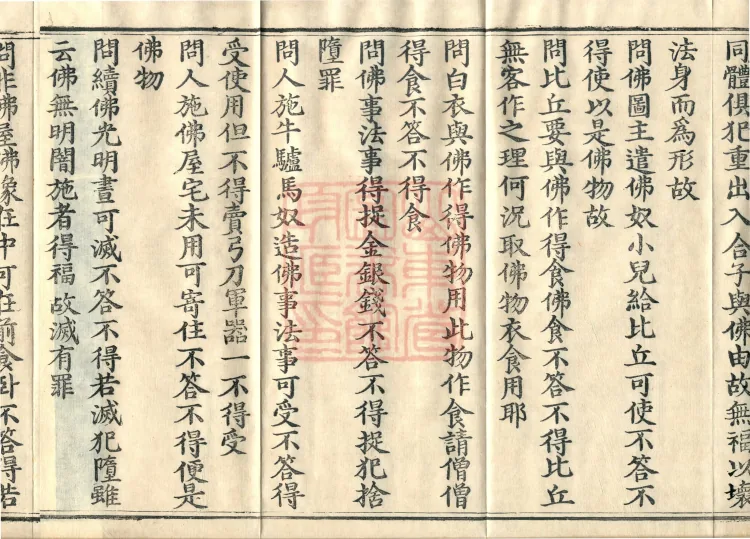 同體俱犯重出入合子與佛由故無福以壞
法身而為形故
問佛圖主遣佛奴小兒給比丘可使不答不
得使以是佛物故
問比丘要與佛作得食佛食不答不得比丘
無客作之理何況取佛物衣食用耶
問白衣與佛作得佛物用此物作食請僧僧
得食不答不得食
問佛事法事得捉金銀錢不答不得捉犯捨
墮罪
問人施牛驢馬奴造佛事法事可受不答得
受使用但不得賣弓刀軍器一不得受
問人施佛屋宅未用可寄住不答不得便是
佛物
問續佛光明晝可滅不答不得若滅犯墮雖
云佛無明闇施者得福故滅有罪
問非佛屋佛象在中可在前食臥不答得若